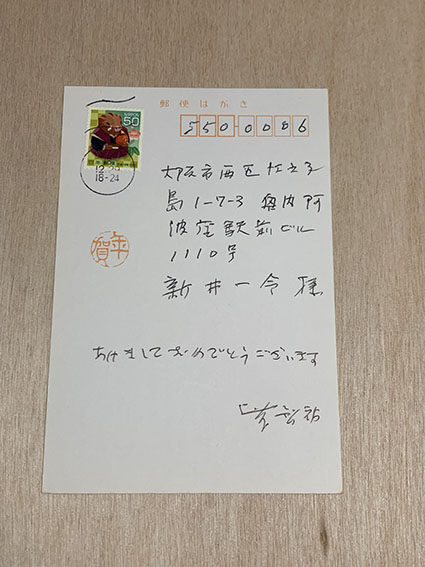 郵便はがき
NIPPON
50
550-0006
18-24
年賀
大阪市西区江之子
島1-7-3 奥内阿
波座駅前ビル
1110号
新井一令様
あけましておめでとうございます